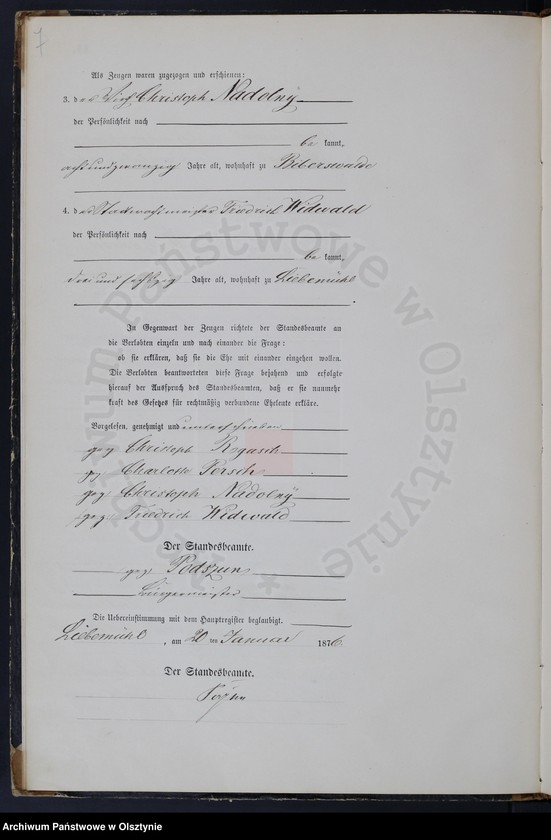 7
Als Zeugen waren zugezogen und erschienen:
3. der Christoph Nadolny
der Persönlichkeit nach
be kannt,
achtundzwanzig Jahre alt, wohnhaft zu Biberswalde
4. der Friedrich Widwald
der Persönlichkeit nach
be kannt,
Jahre alt, wohnhaft zu Liebemühl
In Gegenwart der Zeugen richtete der Standesbeamte an
die Verlobten einzeln und nach einander die Frage:
ob sie erklären, daß sie die Ehe mit einander eingehen wollen.
Die Verlobten beantworteten diese Frage bejahend und erfolgte
hierauf der Ausspruch des Standesbeamten, daß er sie nunmehr
kraft des Gesetzes für rechtmäßig verbundene Eheleute erkläre.
Vorgelesen, genehmigt und unterschrieben
gez Christoph Rogasch
gez Charlotte Persch
gez Christoph Nadolny
gez Friedrich Widwald
Der Standesbeamte.
gez Podszun
Bürgermeister
Die Uebereinstimmung mit dem Hauptregister beglaubigt.
Liebemühl, am 20 ten Januar 1876
Der Standesbeamte.
Archiwum Państwowe w Olsztynie
Archiwum Państwowe w Olsztynie